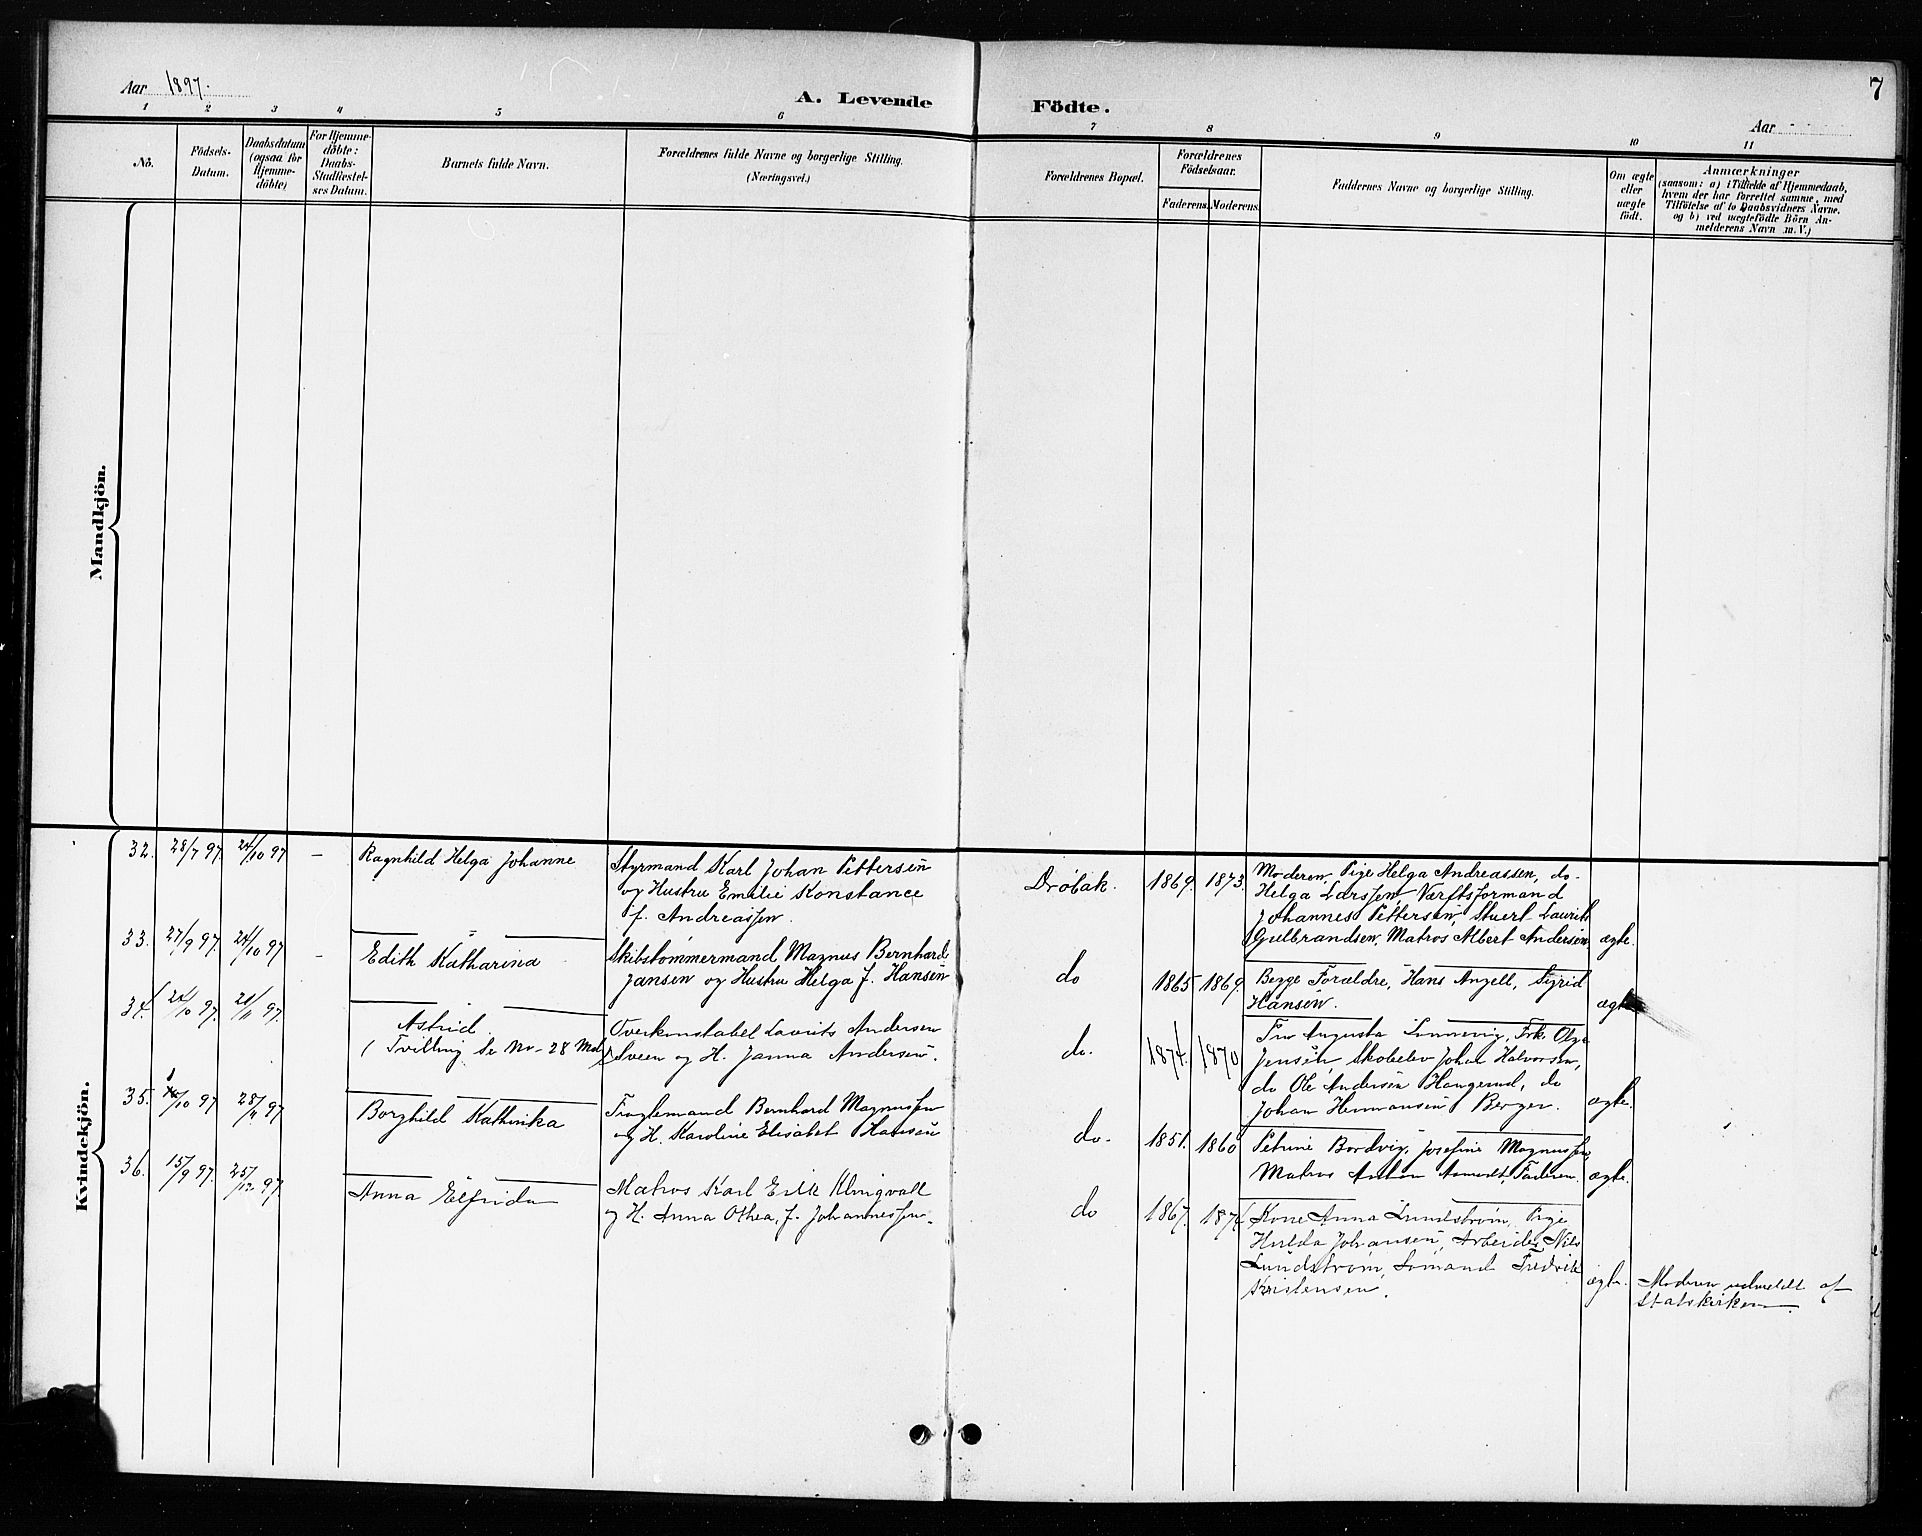 7
Aar 1897.
A. Levende Födte.
Aar
1 2 3 4 5 6 7 8 9 10 11
No.
Födsels-
Datum.
Daabsdatum
(ogsaa for
Hjemme-
döbte)
For Hjemme-
döbte:
Daabs-
Stadfæstel-
ses Datum.
Barnets fulde Navn.
Forældrenes fulde Navne og borgerlige Stilling.
(Næringsvei.)
Forældrenes Bopæl.
Forældrenes
Födselsaar.
Faderens. Moderens.
Faddernes Navne og borgerlige Stilling.
Om ægte
eller
uægte
födt.
Anmærkninger
(saasom: a) i Tilfælde af Hjemmedaab,
hvem der har forrettet samme, med
Tilföielse af to Daabsvidners Navne.
og b) ved uægtefödte Börn An-
melderens Navn m. V.)
Mandkjön.
Kvindekjön.
32. 28/7 97. 24/10 97 – Ragnhild Helga Johanne
Styrmand Karl Johan Pettersen
og Hustru Emilie Konstance
f. Andreassen.
Drøbak. 1869. 1873.
Moderen, Pige Helga Andreassen, do.
Helga Larssen, Værftsformand
Johannes Pettersen, Stuert Laurits
Gulbrandsen, Matros Albert Andersen
ægte.
33. 27/9 97. 24/10 97 – Edith Katharina
Skibstømmermand Magnus Bernhard
Jansen og Hustru Helga f. Hansen
do 1865 1869.
Begge Forældre, Hans Angell, Sigrid
Hansen.
ægte
34. 20/10 97. 21/11 97. Astrid.
(Tvilling Se No – 28 Mdk)
Overkonstabel Laurits Andersen
Sveen og H. Janna Andersen.
do. 1874. 1870
Fru Augusta Linnevig, Frk. Olga
Jensen, Skobelev Johan Halvorsen,
do Ole Andersen Haugerud, do
Johan Hermansen Berger.
ægte.
35. /10 97 28/11 97 Borghild Kathinka
Fraglemand Bernhard Magnussen
og H. Karoline Elisabet Hansen
do. 1851. 1860
Petrine Bordvig, Josefine Magnussen,
Matros Anton Asmundt, Faderen.
ægte.
36. 15/9 97. 25/12 97 Anna Elfrida
Matros Karl Erik Klingvall
og H. Anna Othea, f. Johannessen.
do 1867. 187
Kone Anna Lundstrøm, Pige
Hulda Johansen, Arbeider Nils
Lundstrøm, Sømand Fredrik
Kristensen.
ægte.
Moderen udmeldt af
Statskirken.